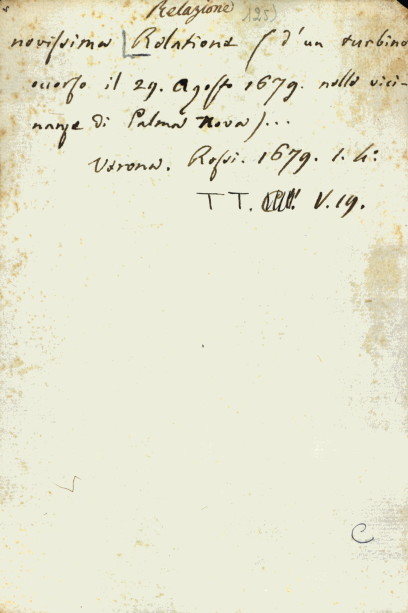 Relazione 125)
novissima Relatione (d'un turbine
occorso il 29. Agosto 1679. nelle vici-
nanze di Palma Nova)...
Verona. Rossi. 1679. f. 4°.
TT. V. 19.
C